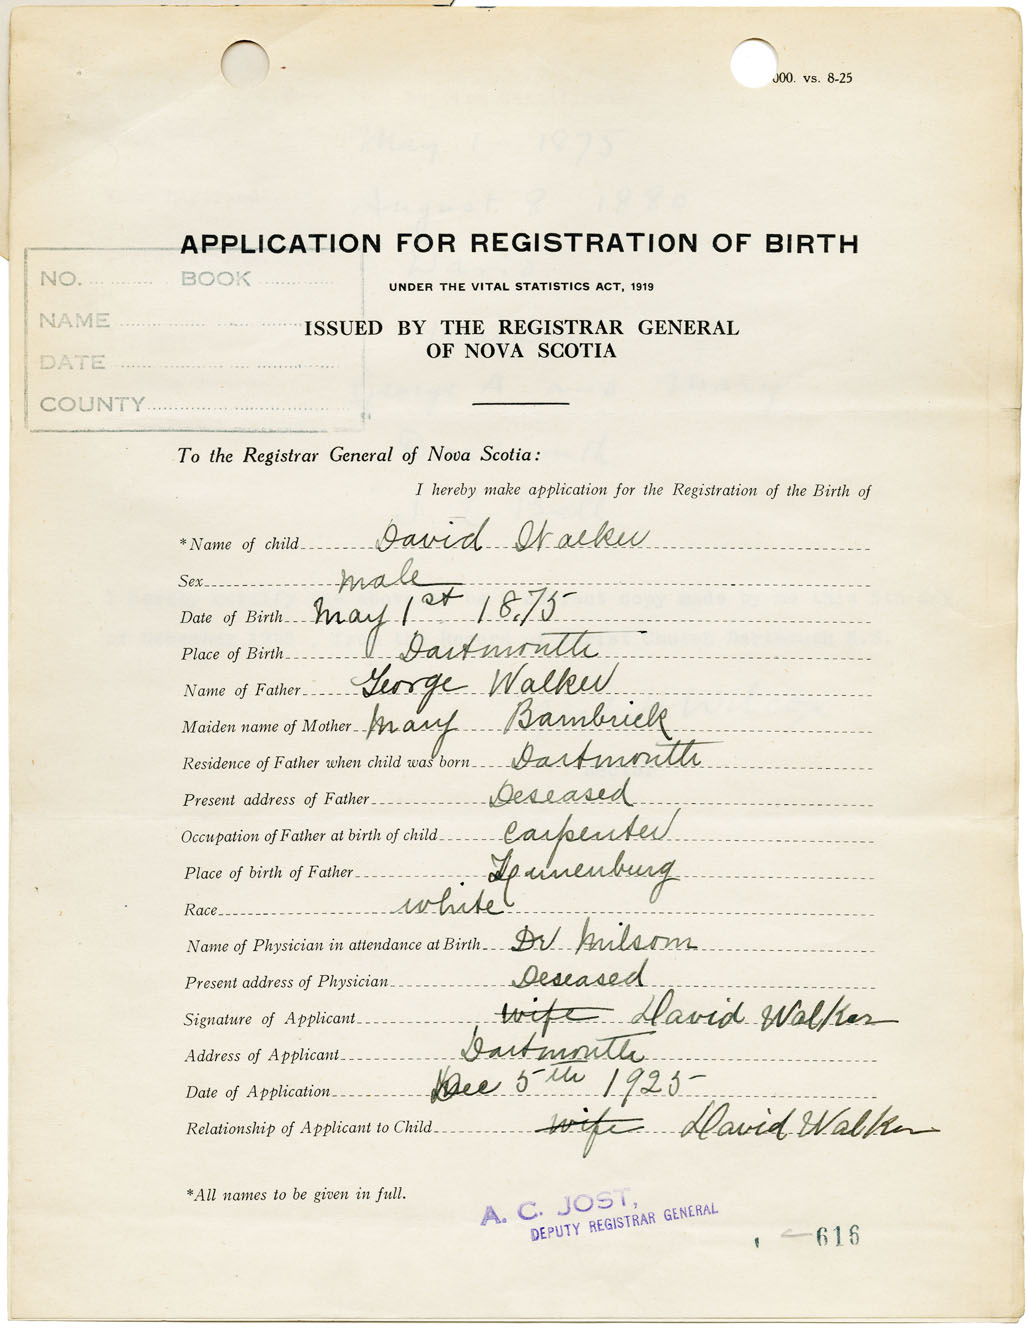 000. vs. 8-25
APPLICATION FOR REGISTRATION OF BIRTH
UNDER THE VITAL STATISTICS ACT, 1919
ISSUED BY THE REGISTRAR GENERAL
OF NOVA SCOTIA
NO. BOOK
NAME
DATE
COUNTY
To the Registrar General of Nova Scotia:
I hereby make application for the Registration of the Birth of
*Name of child David Walker
Sex male
Date of Birth May 1st 1875
Place of Birth Dartmouth
Name of Father George Walker
Maiden name of Mother Mary Bambrick
Residence of Father when child was born Dartmouth
Present address of Father Deseased
Occupation of Father at birth of child Carpenter
Place of birth of Father Lunenburg
Race white
Name of Physician in attendance at Birth Dr Milsom
Present address of Physician Deseased
Signature of Applicant wife David Walker
Address of Applicant Dartmouth
Date of Application Dec 5th 1925
Relationship of Applicant to Child wife David Walker
*All names to be given in full.
A. C. JOST,
DEPUTY REGISTRAR GENERAL
616